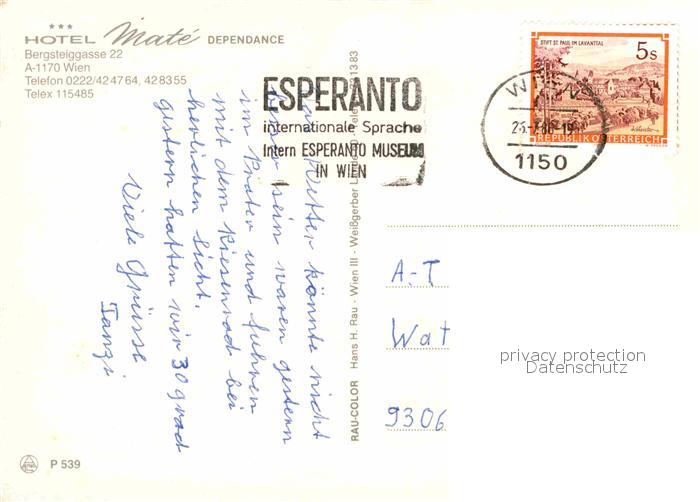 HOTEL Maté DEPENDANCE
Bergsteiggasse 22
A-1170 Wien
Telefon 0222/42 47 64, 42 83 55
Telex 115485
ESPERANTO
internationale Sprache
Intern ESPERANTO MUSEUM
IN WIEN
STIFT ST. PAUL IM LAVANTTAL
5s
REPUBLIK ÖSTERREICH
WIEN
1150
Wetter könnte nicht
sein waren gestern
im Prater und fuhren
mit dem Riesenrad bei
herlichen Sicht.
gestern hatten wir 30 grad
Viele Grüsse
Tanzi
RAU-COLOR Hans H. Rau · Wien III · Weißgerber
A-T
Wat
9306
privacy protection
Datenschutz
P 539